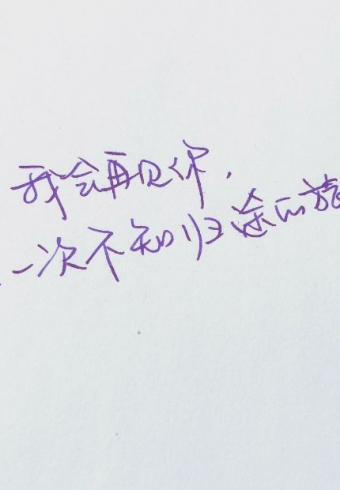 我会再见你，
一次不知归途的旅